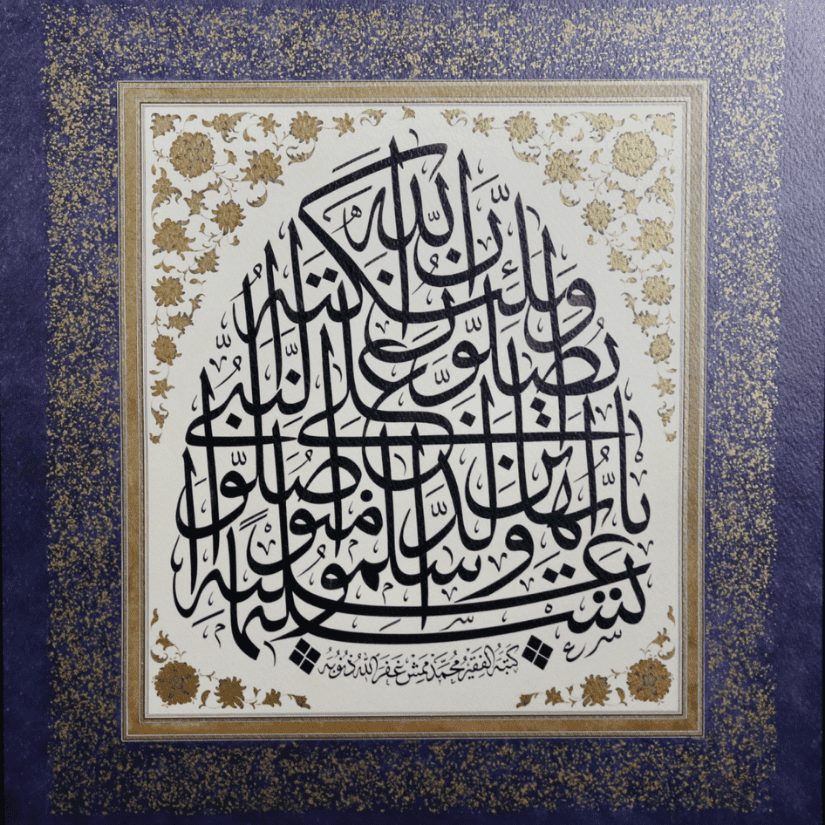 إن الله وملئكته يصلون على النبي يا أيها الذين امنوا صلوا عليه وسلموا تسليما
كتبه الفقير محمد ممش غفر الله ذنوبه